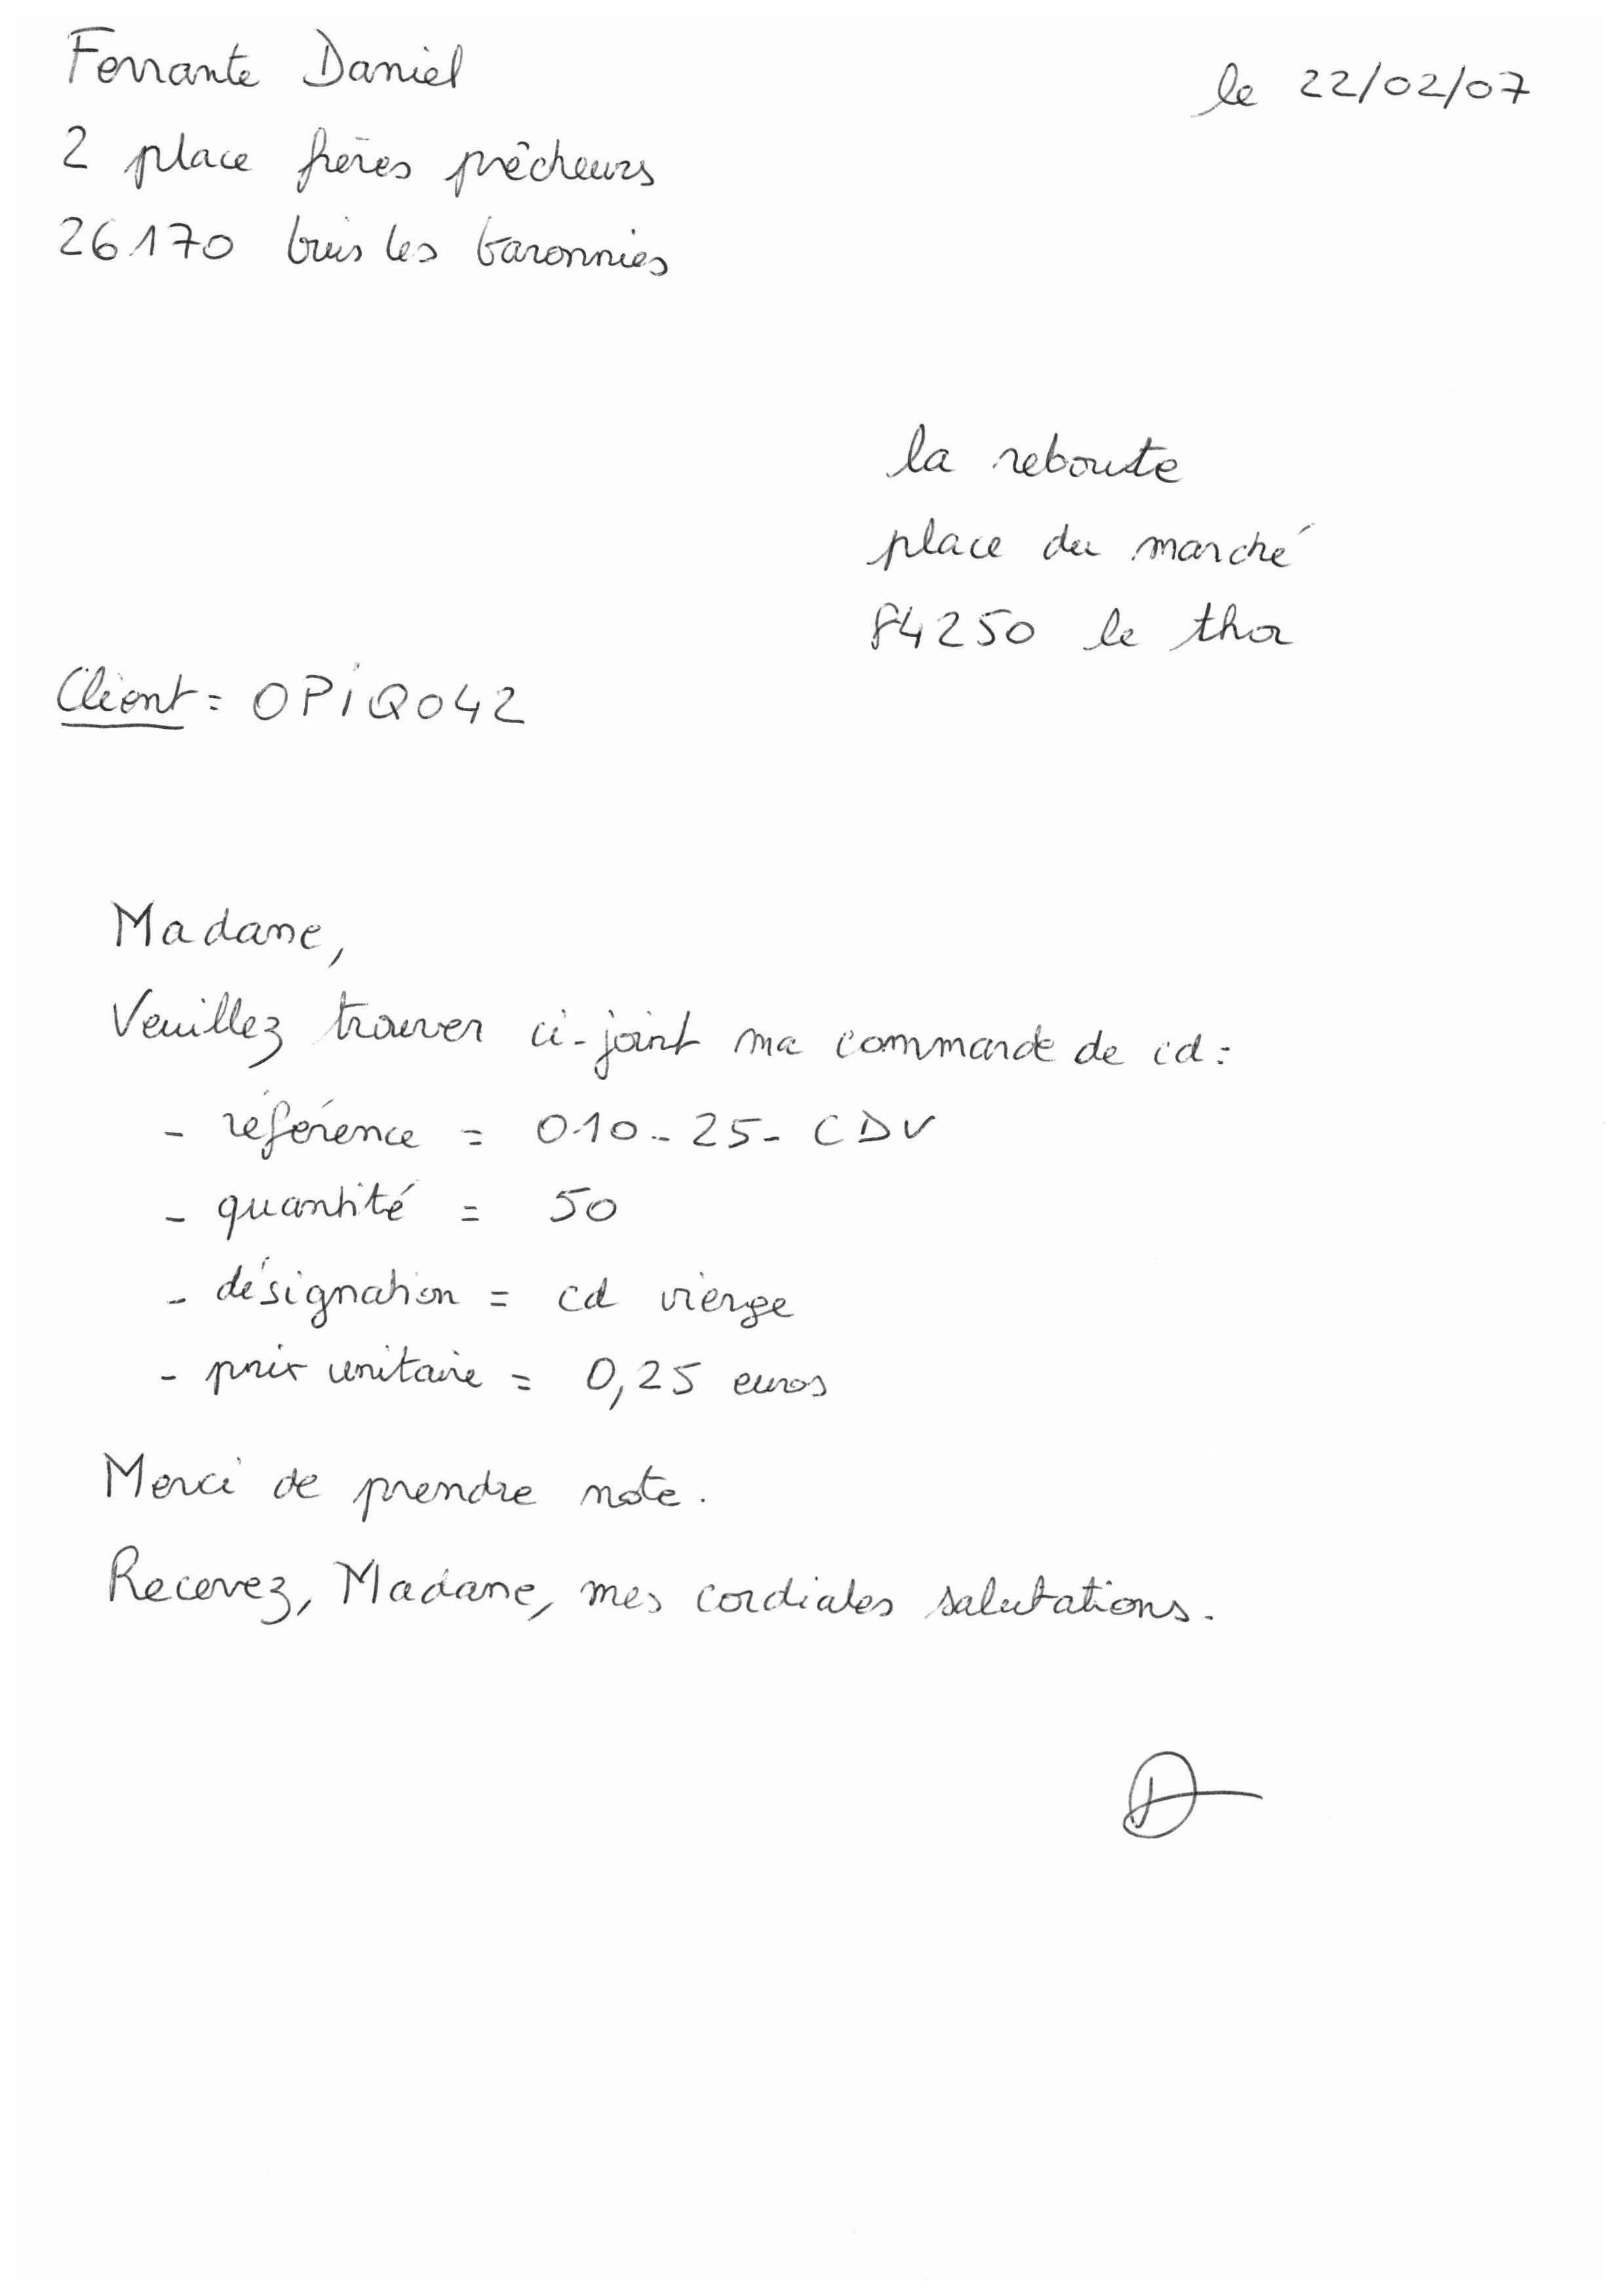 Ferrante Daniel
le 22/02/07
2 place frères prêcheurs
26170 buis les baronnies
la reboute
place du marché
84250 le thor
Client = OPIQ042
Madame,
Veuillez trouver ci-joint ma commande de cd :
- référence = 010-25-CDV
- quantité = 50
- désignation = cd vierge
- prix unitaire = 0,25 euros
Merci de prendre note.
Recevez, Madame, mes cordiales salutations.